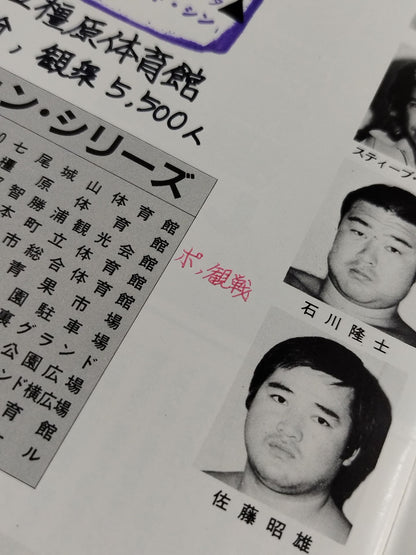 橿原体育館
観衆 5,500人
ン・シリーズ
七尾城山体育館
橿原体育館
智勝浦観光会館
本町立体育館
市総合体育館
青果市場
園駐車場
裏グランド
公園広場
ンド横広場
育館
ール
ポ,観戦
スティーブ
石川隆士
佐藤昭雄